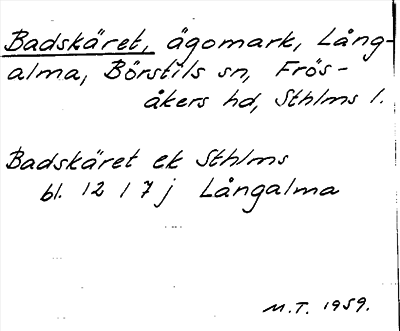 Badskäret, ägomark, Lång-
alma, Börstils sn, Frös-
åkers hd, Sthlms l.
Badskäret ek Sthlms
bl. 12 I 7 j Långalma
M.T. 1959.